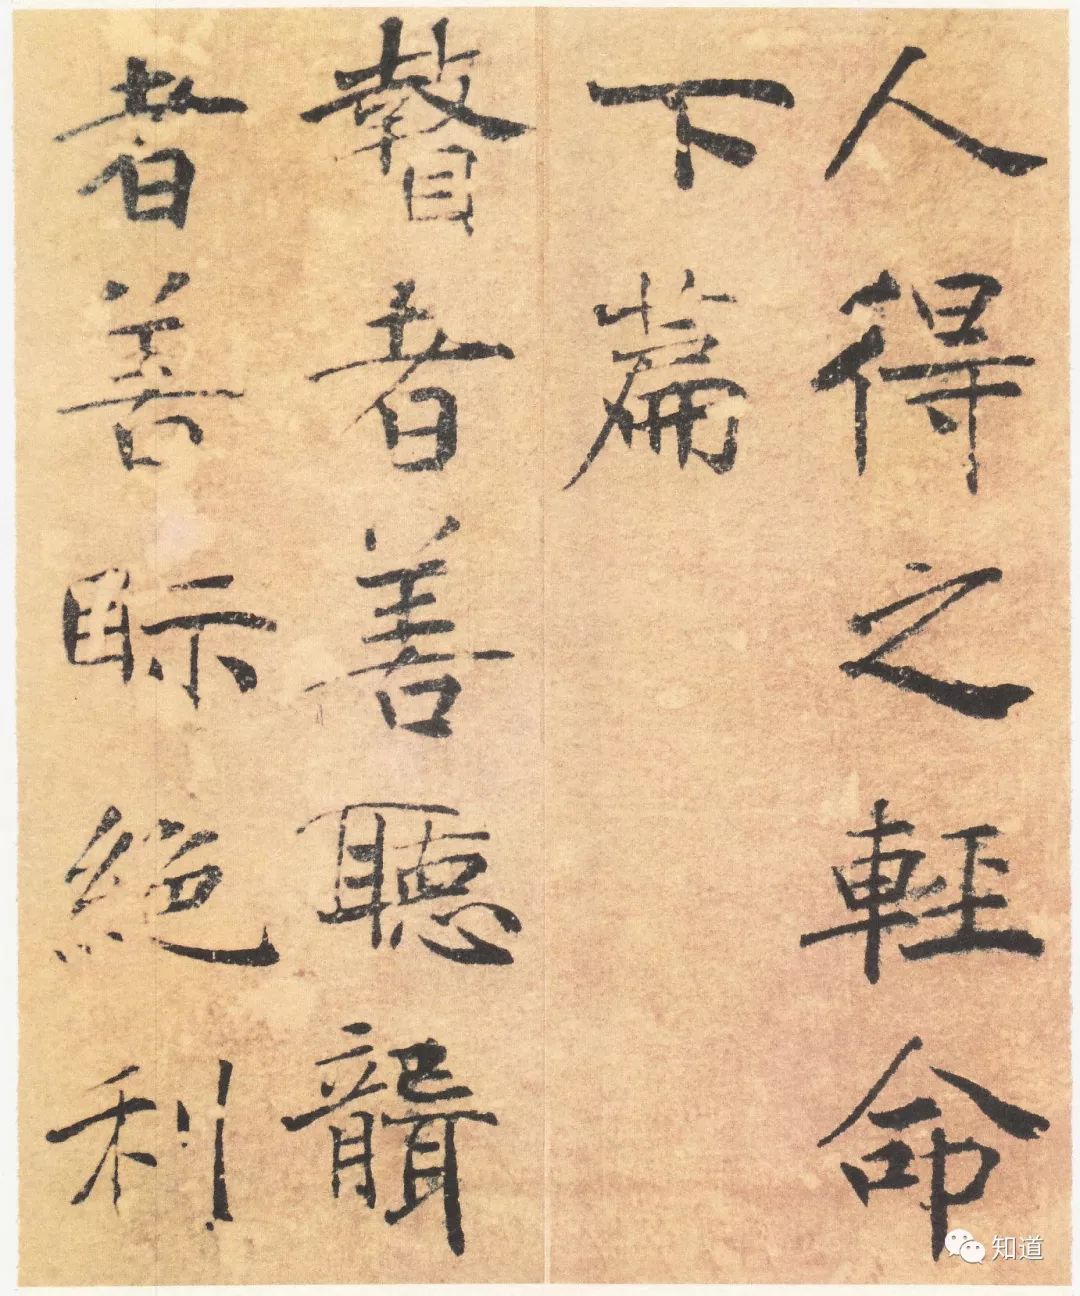 人得之輕命
下篇
瞽者善聽聾
者善眎絕利
知道